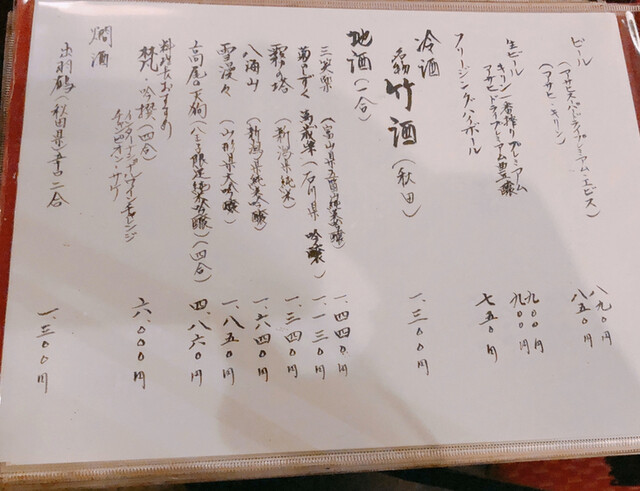 ビール
(アサヒスーパードライプレミアム・エビス) 八九〇円
(アサヒ・キリン) 八五〇円
生ビール
キリン一番搾りプレミアム 九〇〇円
アサヒドライプレミアム豊醸 九〇〇円
フリージングハイボール 七五〇円
冷酒
竹酒(秋田) 一、三〇〇円
地酒(二合)
三笑楽(富山県五箇山純米吟醸) 一、四四〇円
菊のしずく 萬歳楽(石川県 吟醸) 一、一三〇円
霧の塔(新潟県純米) 一、三四〇円
八海山(新潟県純米吟醸) 一、六四〇円
雪漫々(山形県大吟醸) 一、八五〇円
高尾の天狗(八王子限定純米吟醸)(四合) 四、八六〇円
料理長おすすめ
梵 吟撰(四合) 六、〇〇〇円
インターナショナルワインチャレンジ
燗酒
出羽鶴(秋田県辛口二合) 一、三〇〇円